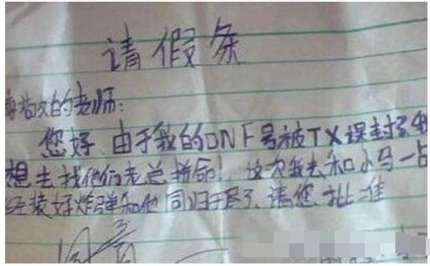 请假条
尊敬的老师:
您好,由于我的DNF号被TX误封了我
想去找他们老总拼命!这次我去和小马一占
已装好炸弹和他同归于尽了,请您批准